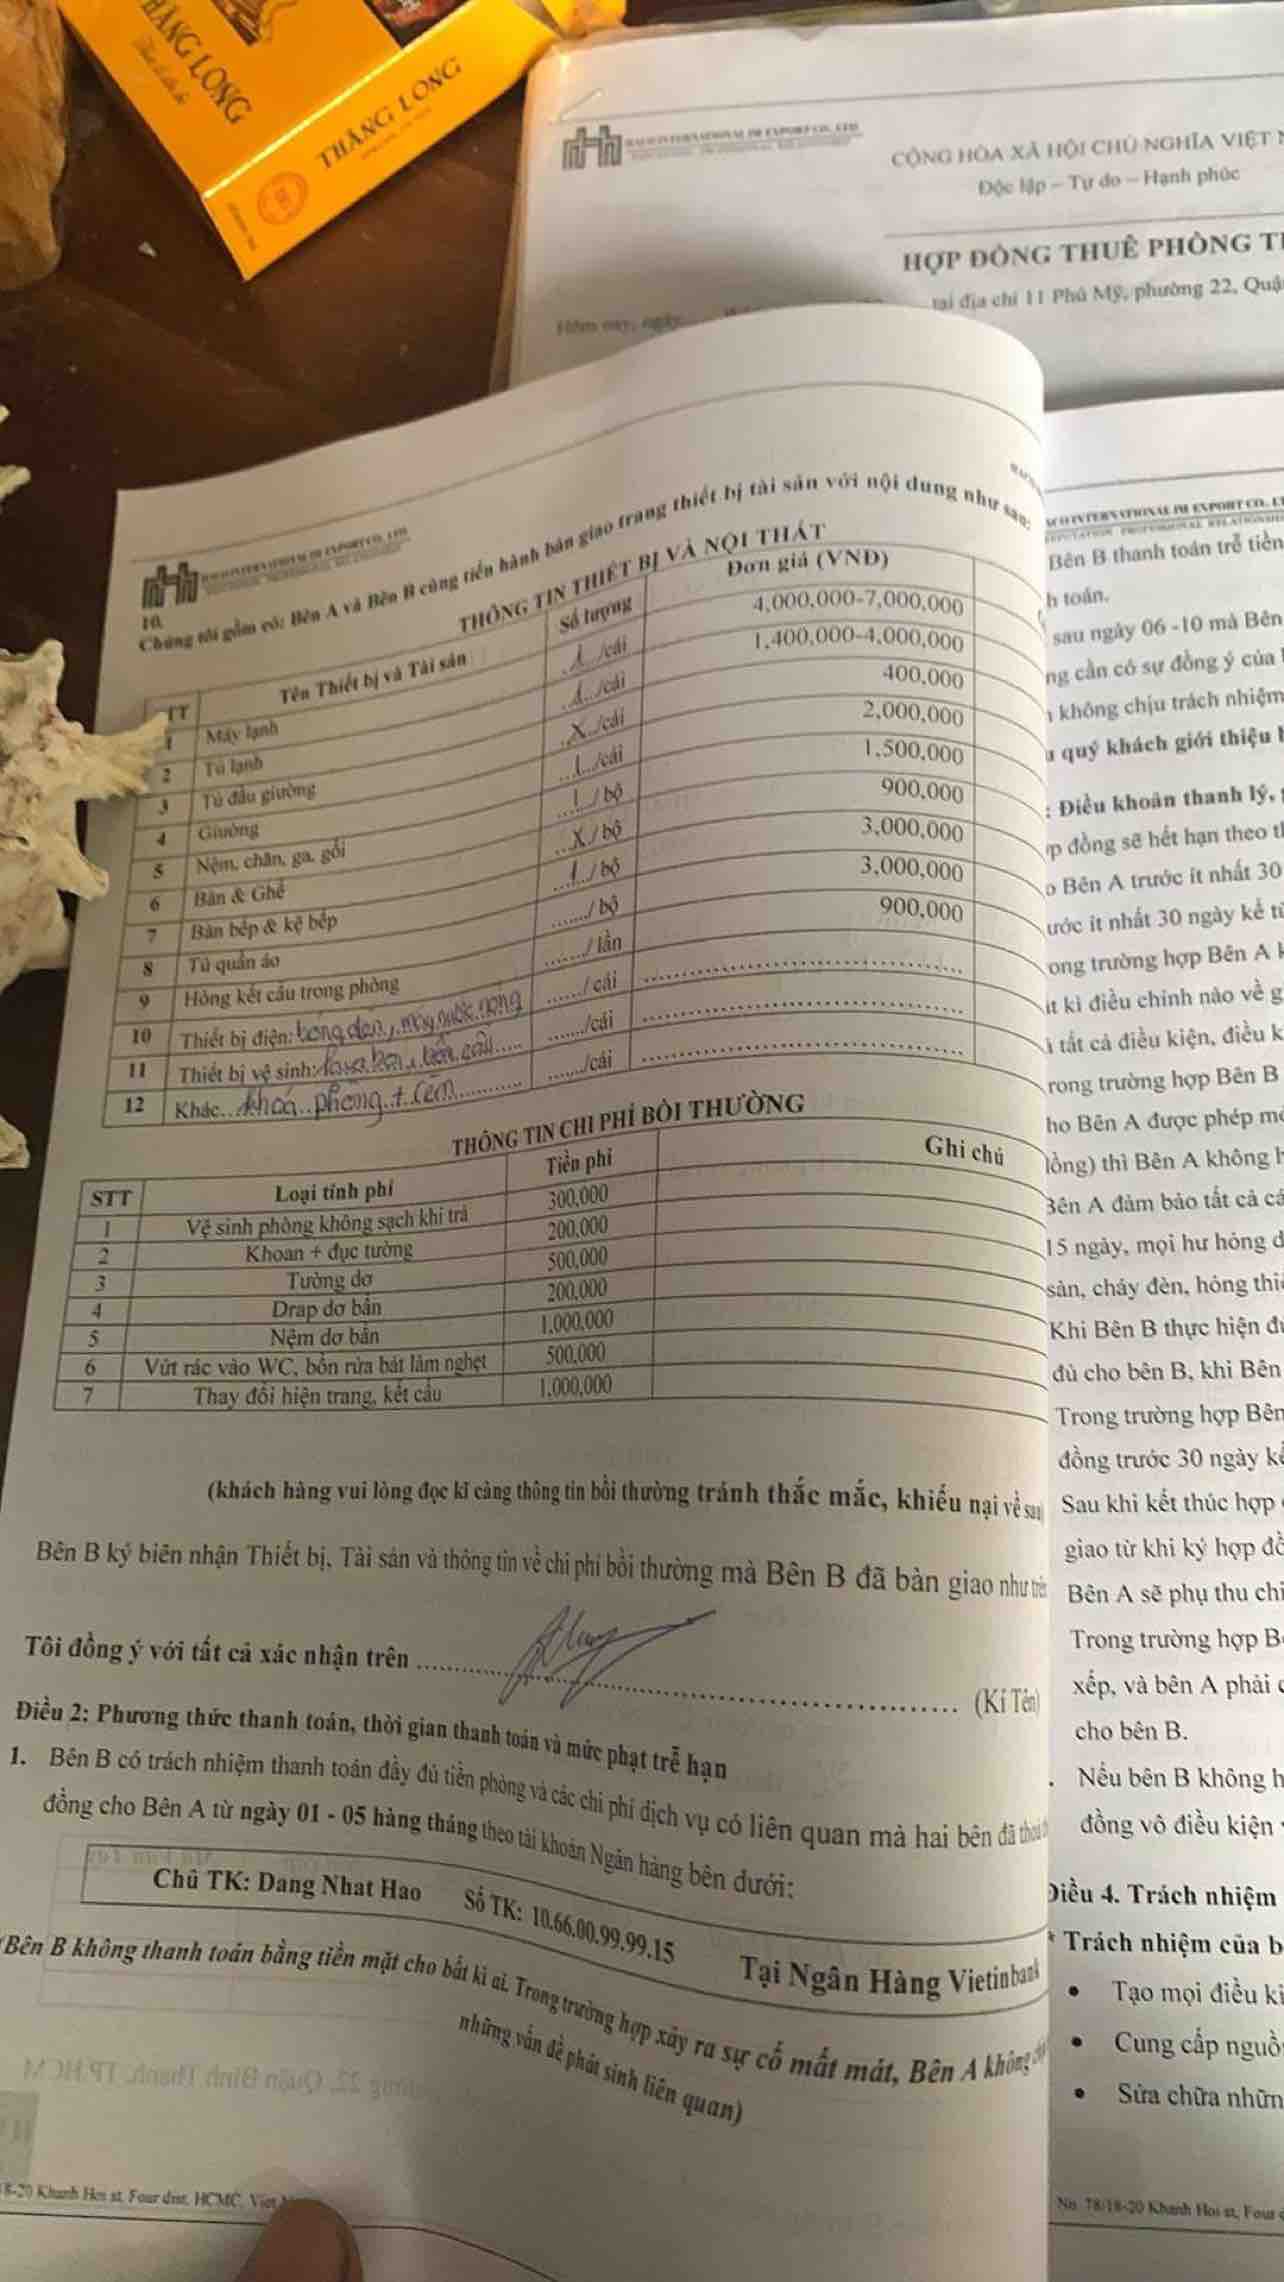 THĂNG LONG
THĂNG LONG
CỘNG HÒA XÃ HỘI CHỦ NGHĨA VIỆT
Độc lập – Tự do – Hạnh phúc
HỢP ĐỒNG THUÊ PHÒNG
tại địa chỉ 11 Phú Mỹ, phường 22, Quậ
Hôm nay, ngày
10.
Chúng tôi gồm có: Bên A và Bên B cùng tiến hành bàn giao trang thiết bị tài sản với nội dung như sau:
THÔNG TIN THIẾT BỊ VÀ NỘI THẤT
TT Tên Thiết bị và Tài sản Số lượng Đơn giá (VNĐ)
1 Máy lạnh 1 /cái 4,000,000-7,000,000
2 Tủ lạnh 1 /cái 1,400,000-4,000,000
3 Tủ đầu giường X /cái 400,000
4 Giường 1 /cái 2,000,000
5 Nệm, chăn, ga, gối 1 / bộ 1,500,000
6 Bàn & Ghế X / bộ 900,000
7 Bàn bếp & kệ bếp 1 / bộ 3,000,000
8 Tủ quần áo ....../ bộ 3,000,000
9 Hỏng kết cấu trong phòng ....../ lần 900,000
10 Thiết bị điện: bóng đèn, máy nước nóng ....../ cái
11 Thiết bị vệ sinh: lavabon, bồn cầu ....../cái
12 Khác khoá phòng + rèm ....../cái
THÔNG TIN CHI PHÍ BỒI THƯỜNG
STT Loại tính phí Tiền phí Ghi chú
1 Vệ sinh phòng không sạch khi trả 300,000
2 Khoan + đục tường 200,000
3 Tường dơ 500,000
4 Drap dơ bẩn 200,000
5 Nệm dơ bẩn 1,000,000
6 Vứt rác vào WC, bồn rửa bát làm nghẹt 500,000
7 Thay đổi hiện trạng, kết cấu 1,000,000
(khách hàng vui lòng đọc kĩ càng thông tin bồi thường tránh thắc mắc, khiếu nại về sau
Bên B ký biên nhận Thiết bị, Tài sản và thông tin về chi phí bồi thường mà Bên B đã bàn giao như trên
Tôi đồng ý với tất cả xác nhận trên
(Kí Tên)
Điều 2: Phương thức thanh toán, thời gian thanh toán và mức phạt trễ hạn
1. Bên B có trách nhiệm thanh toán đầy đủ tiền phòng và các chi phí dịch vụ có liên quan mà hai bên đã
đồng cho Bên A từ ngày 01 - 05 hàng tháng theo tài khoản Ngân hàng bên dưới:
Chủ TK: Dang Nhat Hao Số TK: 10.66.00.99.99.15 Tại Ngân Hàng Vietinbank
(Bên B không thanh toán bằng tiền mặt cho bất kì ai. Trong trường hợp xảy ra sự cố mất mát, Bên A không
những vấn đề phát sinh liên quan)
8-20 Khanh Hoi st, Four dist, HCMC, Viet
Bên B thanh toán trễ tiền
h toán.
sau ngày 06 -10 mà Bên
ng cần có sự đồng ý của
không chịu trách nhiệm
quý khách giới thiệu
: Điều khoản thanh lý,
p đồng sẽ hết hạn theo
Bên A trước ít nhất 30
ước ít nhất 30 ngày kể từ
ong trường hợp Bên A
t kì điều chỉnh nào về
tất cả điều kiện, điều k
rong trường hợp Bên B
ho Bên A được phép
đồng) thì Bên A không
Bên A đảm bảo tất cả
15 ngày, mọi hư hỏng
sàn, cháy đèn, hỏng
Khi Bên B thực hiện
đủ cho bên B, khi Bên
Trong trường hợp Bên
đồng trước 30 ngày kể
Sau khi kết thúc hợp
giao từ khi ký hợp
Bên A sẽ phụ thu
Trong trường hợp
xếp, và bên A phải
cho bên B.
Nếu bên B không
đồng vô điều kiện
Điều 4. Trách nhiệm
* Trách nhiệm của b
• Tạo mọi điều ki
• Cung cấp nguồ
• Sửa chữa nhữn
No. 78/18-20 Khanh Hoi st, Four